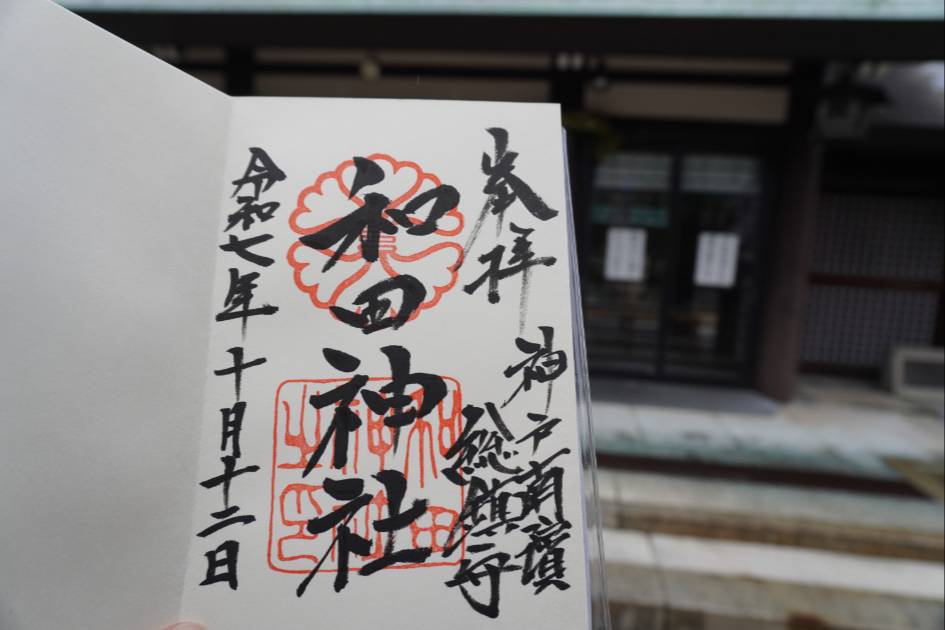 奉拝
神戸南濱
総鎮守
和田神社
令和七年十月十二日